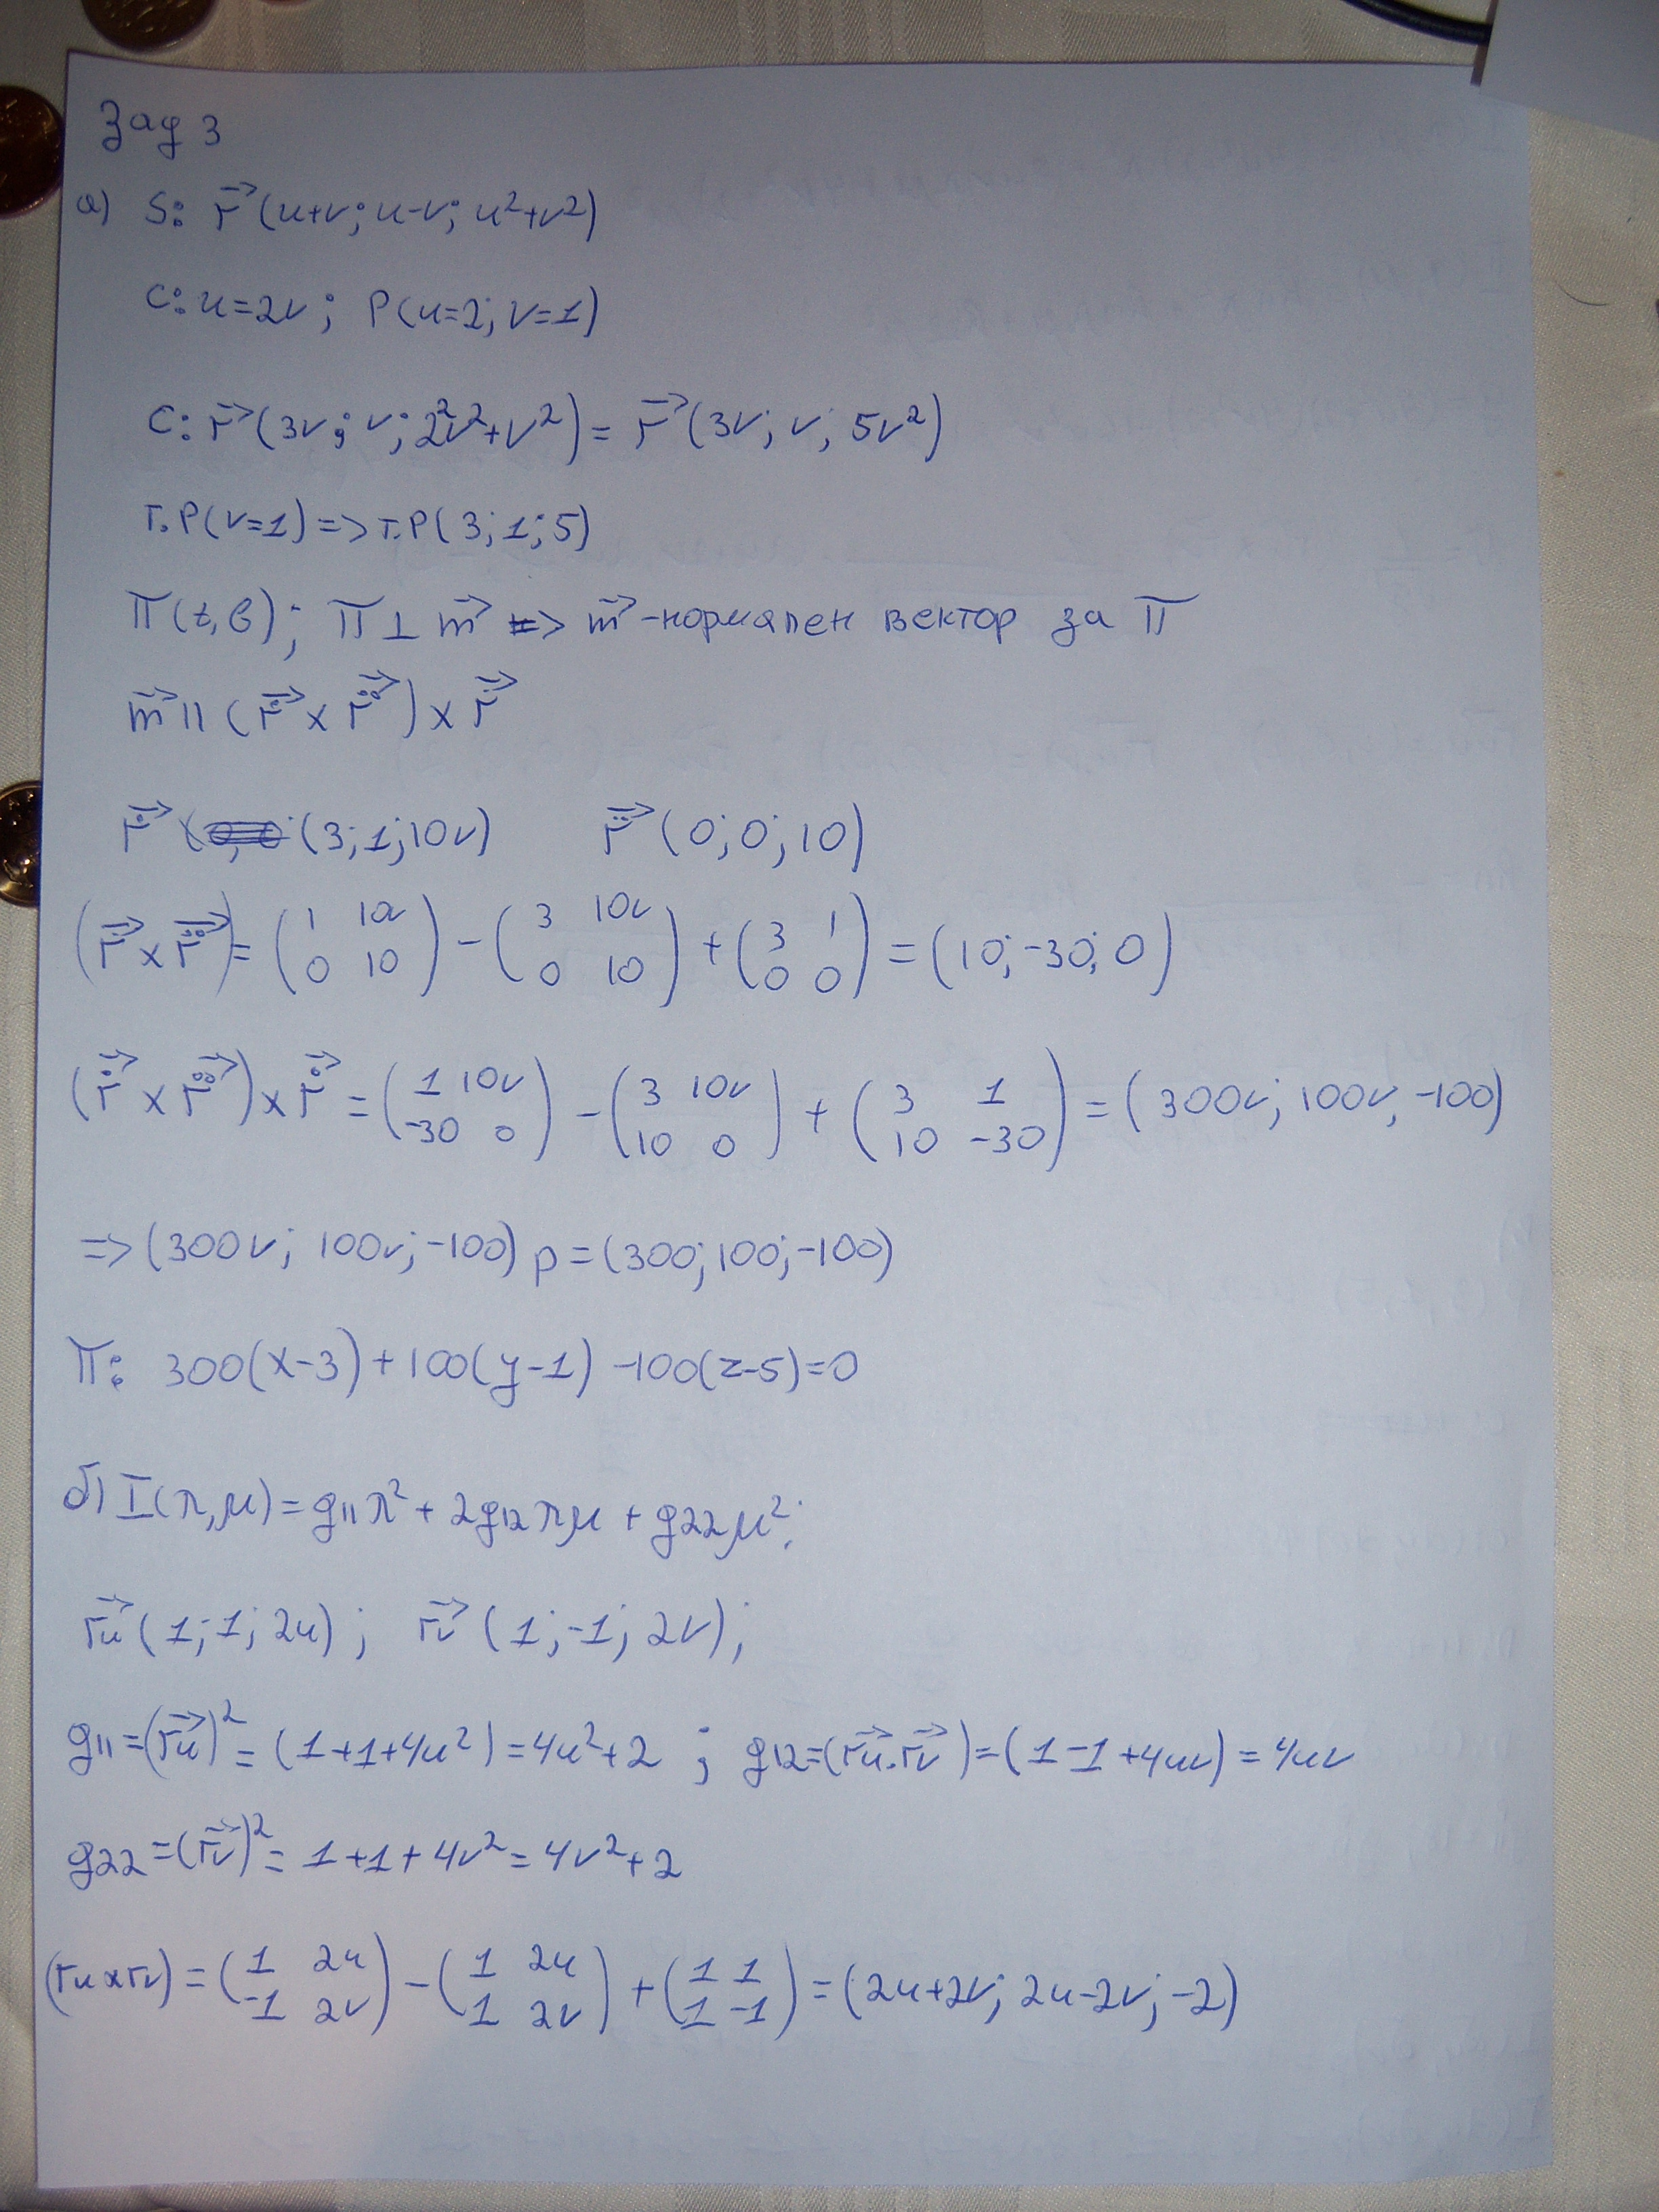 Зад 3
а) S: r⃗(u+v; u-v; u²+v²)
C: u=2v; P(u=2; v=1)
C: r⃗(3v; v; 2²v²+v²) = r⃗(3v; v; 5v²)
т.P(v=1) => т.P(3; 1; 5)
π(t,b); π⊥m⃗ => m⃗ -нормален вектор за π
m⃗ || (ṙ⃗ × r̈⃗) × ṙ⃗
ṙ⃗ (3; 1; 10v) r̈⃗ (0; 0; 10)
(ṙ⃗ × r̈⃗) = (1 10v / 0 10) - (3 10v / 0 10) + (3 1 / 0 0) = (10; -30; 0)
(ṙ⃗ × r̈⃗) × ṙ⃗ = (1 10v / -30 0) - (3 10v / 10 0) + (3 1 / 10 -30) = (300v; 100v, -100)
=> (300v; 100v; -100) p = (300; 100; -100)
π: 300(x-3) + 100(y-1) -100(z-5) = 0
б) I(λ,μ) = g11λ² + 2g12λμ + g22μ²;
ru⃗ (1; 1; 2u); rv⃗ (1; -1; 2v);
g11 = (ru⃗)² = (1+1+4u²) = 4u²+2 ; g12 = (ru⃗.rv⃗) = (1-1+4uv) = 4uv
g22 = (rv⃗)² = 1+1+4v² = 4v²+2
(ru×rv) = (1 2u / -1 2v) - (1 2u / 1 2v) + (1 1 / 1 -1) = (2u+2v; 2u-2v; -2)